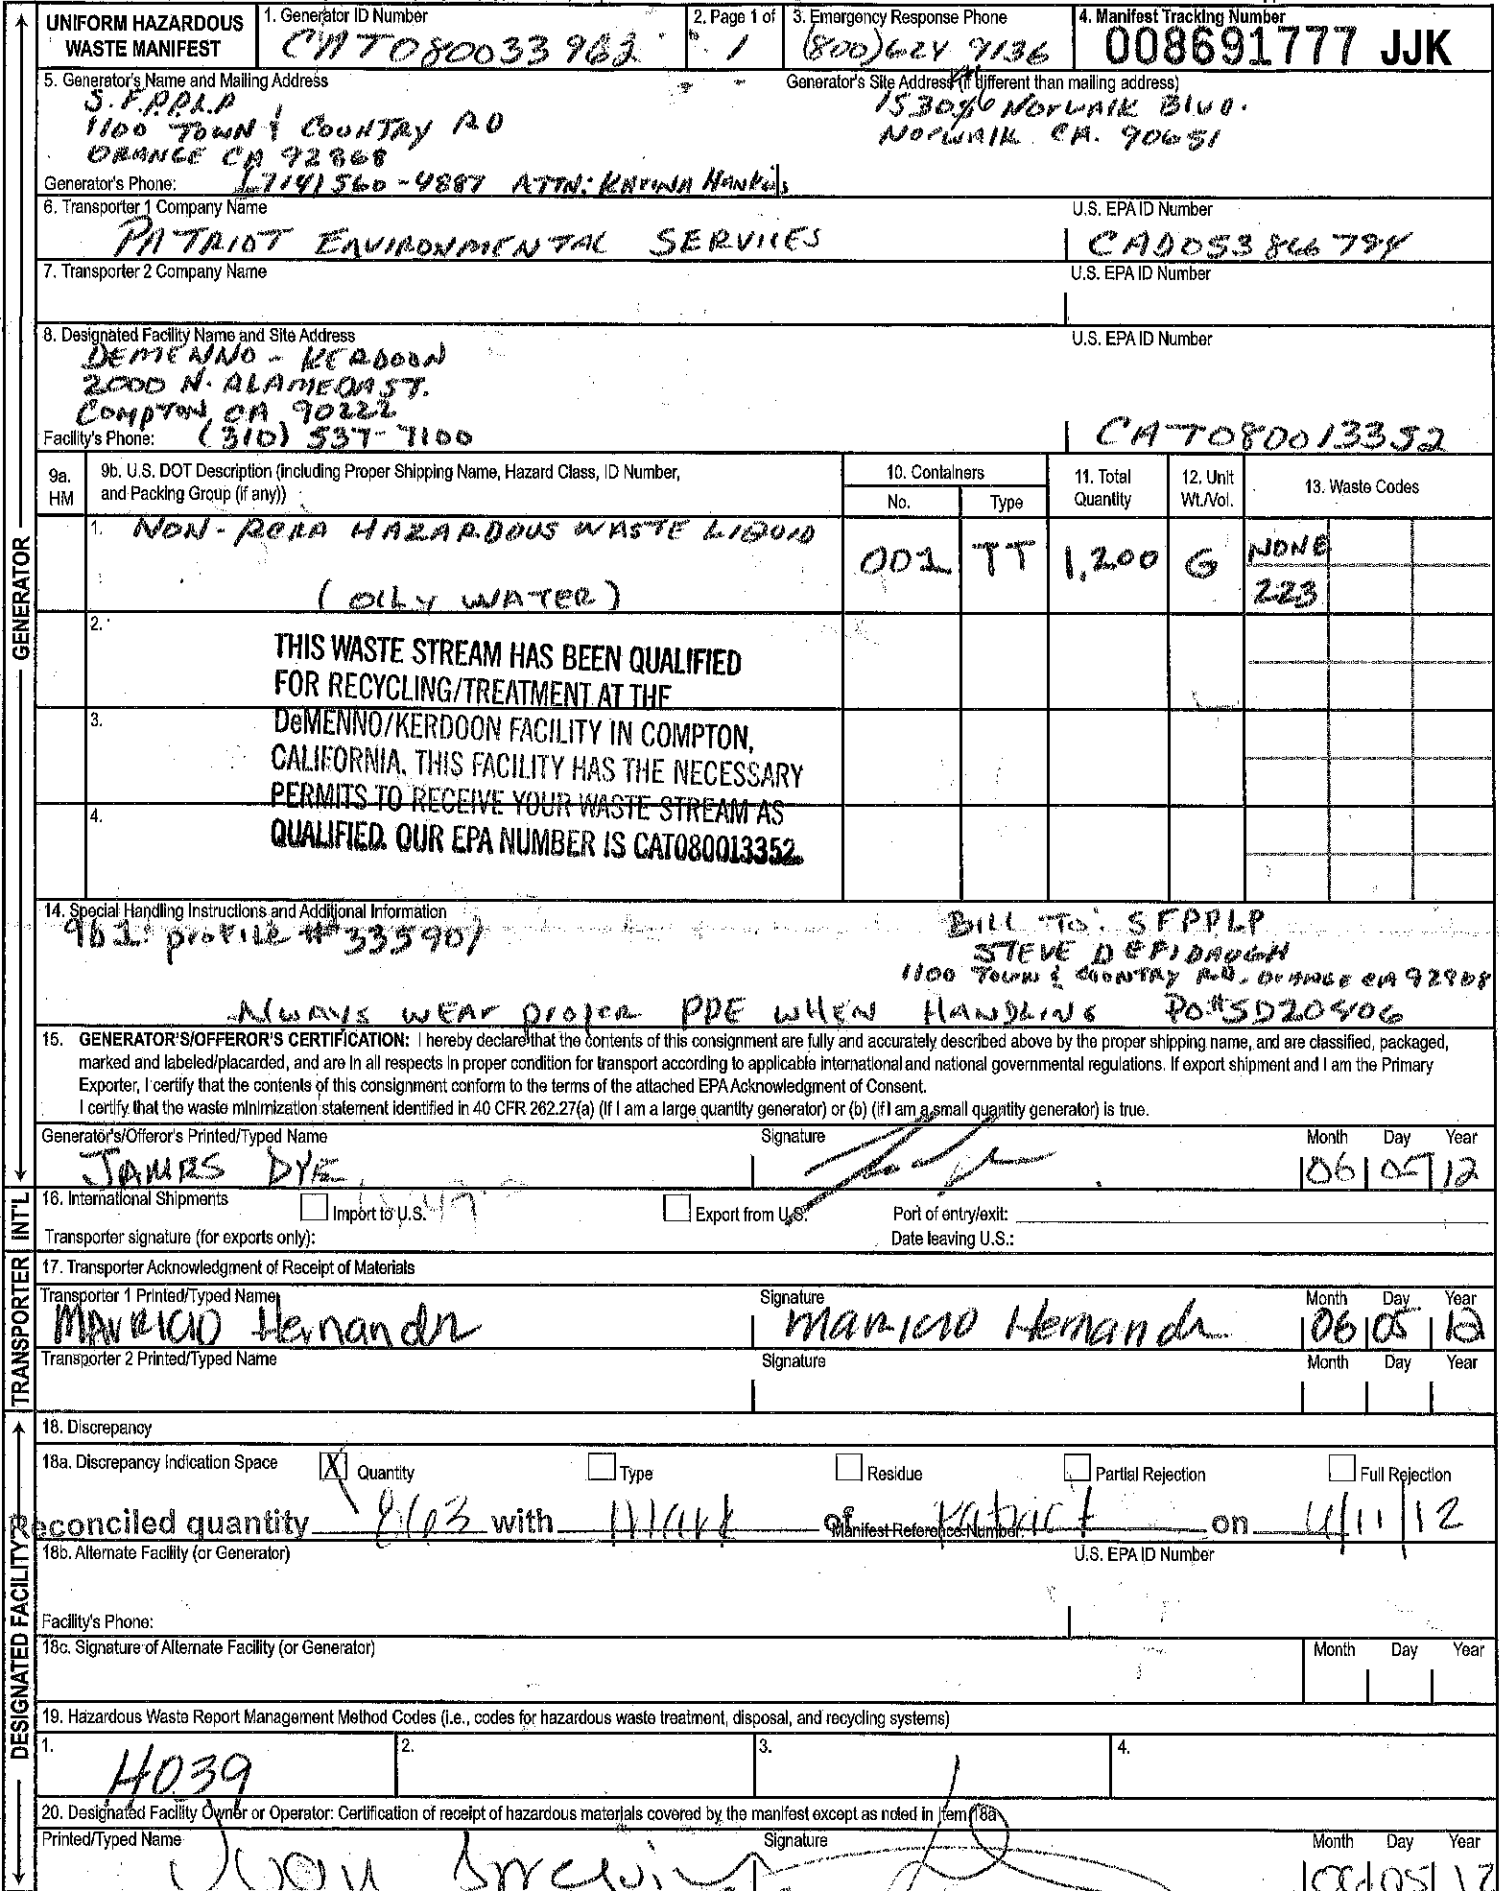 UNIFORM HAZARDOUS WASTE MANIFEST
1. Generator ID Number
CAT080033962
2. Page 1 of
1
3. Emergency Response Phone
(800)624 9136
4. Manifest Tracking Number
008691777 JJK
5. Generator's Name and Mailing Address
S.F.P.P.L.P
1100 TOWN & COUNTRY RD
ORANGE CA 92868
Generator's Phone: (714) 560-4887 ATTN:
Generator's Site Address (if different than mailing address)
15306 NORWALK BLVD.
NORWALK CA. 90651
6. Transporter 1 Company Name
PATRIOT ENVIRONMENTAL SERVICES
U.S. EPA ID Number
CAD053866794
7. Transporter 2 Company Name
U.S. EPA ID Number
8. Designated Facility Name and Site Address
DEMENNO - KERDOON
2000 N. ALAMEDA ST.
COMPTON, CA 90222
Facility's Phone: (310) 537-7100
U.S. EPA ID Number
CAT080013352
9a. HM
9b. U.S. DOT Description (including Proper Shipping Name, Hazard Class, ID Number, and Packing Group (if any))
10. Containers
No.
Type
11. Total Quantity
12. Unit Wt./Vol.
13. Waste Codes
1. NON-RCRA HAZARDOUS WASTE LIQUID
(OILY WATER)
001 TT 1,200 G NONE
223
2.
THIS WASTE STREAM HAS BEEN QUALIFIED
FOR RECYCLING/TREATMENT AT THE
3.
DeMENNO/KERDOON FACILITY IN COMPTON,
CALIFORNIA. THIS FACILITY HAS THE NECESSARY
PERMITS TO RECEIVE YOUR WASTE STREAM AS
4.
QUALIFIED. OUR EPA NUMBER IS CAT080013352.
14. Special Handling Instructions and Additional Information
9b1 profile #335901
BILL TO: SFPPLP
STEVE DEFIBAUGH
1100 TOWN & COUNTRY RD. ORANGE CA 92868
ALWAYS WEAR proper PPE WHEN HANDLING
15. GENERATOR'S/OFFEROR'S CERTIFICATION: I hereby declare that the contents of this consignment are fully and accurately described above by the proper shipping name, and are classified, packaged,
marked and labeled/placarded, and are in all respects in proper condition for transport according to applicable international and national governmental regulations. If export shipment and I am the Primary
Exporter, I certify that the contents of this consignment conform to the terms of the attached EPA Acknowledgment of Consent.
I certify that the waste minimization statement identified in 40 CFR 262.27(a) (if I am a large quantity generator) or (b) (if I am a small quantity generator) is true.
Generator's/Offeror's Printed/Typed Name
JAMES DYE
Signature
Month Day Year
06 05 12
16. International Shipments
Import to U.S.
Export from U.S.
Port of entry/exit:
Transporter signature (for exports only):
Date leaving U.S.:
17. Transporter Acknowledgment of Receipt of Materials
Transporter 1 Printed/Typed Name
MAURICIO Hernandz
Signature
Mauricio Hernandz
Month Day Year
06 05 12
Transporter 2 Printed/Typed Name
Signature
Month Day Year
18. Discrepancy
18a. Discrepancy Indication Space
X Quantity
Type
Residue
Partial Rejection
Full Rejection
Reconciled quantity with Mark of on
Manifest Reference Number:
18b. Alternate Facility (or Generator)
U.S. EPA ID Number
Facility's Phone:
18c. Signature of Alternate Facility (or Generator)
Month Day Year
19. Hazardous Waste Report Management Method Codes (i.e., codes for hazardous waste treatment, disposal, and recycling systems)
1. H039
2.
3.
4.
20. Designated Facility Owner or Operator: Certification of receipt of hazardous materials covered by the manifest except as noted in Item 18a
Printed/Typed Name
Signature
Month Day Year
06 05 12
GENERATOR
INT'L
TRANSPORTER
DESIGNATED FACILITY